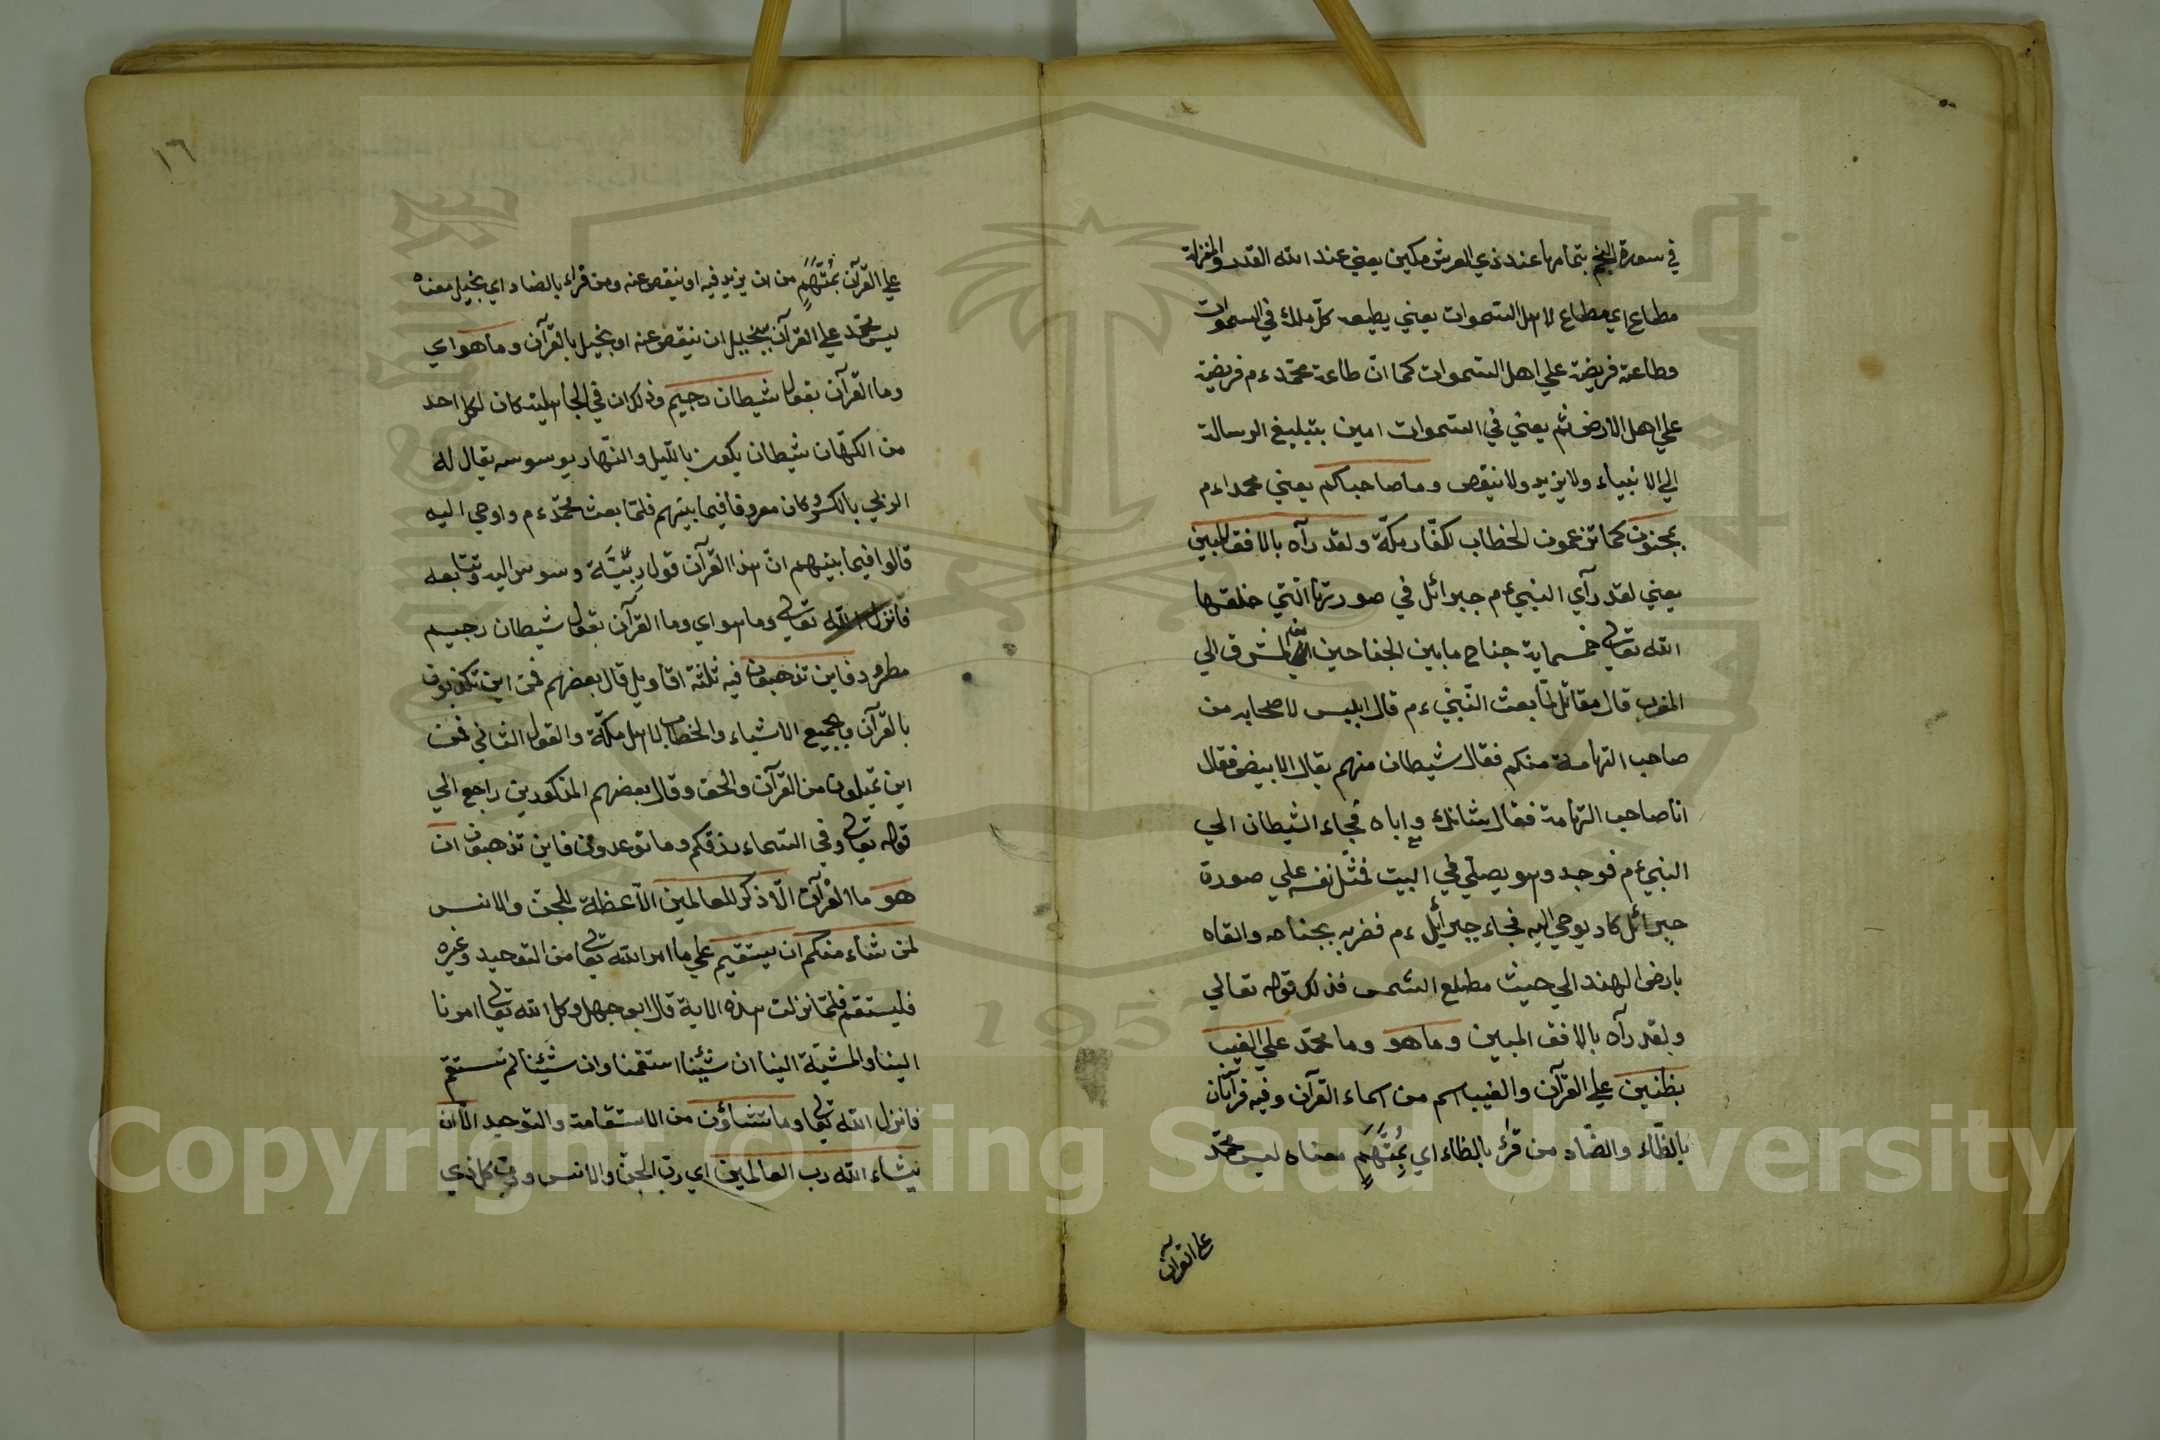 في سورة النجم بتمامها عند ذي العرش مكين يعني عند الله القدر والمنزلة
مطاع اي مطاع لاهل السموات يعني يطيعه كل ملك في السموات
وطاعته فريضة علي اهل السموات كما ان طاعة محمد ءم فريضة
علي اهل الارض ثم يعني في السموات امين بتبليغ الرسالة
الي الانبياء ولا يزيد ولا ينقص وما صاحبكم يعني محمدا ءم
بمجنون كما تزعمون الخطاب لكفار مكة ولقد رآه بالافق المبين
يعني لقد رآي النبي ءم جبرائل في صورتها التي خلقها
الله تعالي خمسماية جناح ما بين الجناحين المشرق الي
المغرب قال مقاتل لما بعث النبي ءم قال ابليس لاصحابه من
صاحب التهامة منكم فقال شيطان منهم يقال الابيض فقال
انا صاحب التهامة فقال شانك واياه فجاء الشيطان الي
النبي ءم فوجد وهو يصلي في البيت فمثل نفسه علي صورة
جبرائل كاد يوحي اليه فجاء جبرائيل ءم فضربه بجناحه والقاه
بارض الهند الي حيث مطلع الشمس فذلك قوله تعالي
ولقد رآه بالافق المبين وما هو وما محمد علي الغيب
بظنين علي القرآن والغيب اسم من اسماء القرآن وفيه قرآتان
بالظاء والضاد من قرئ بالظاء اي بمتهم معناه ليس محمد
علي القرآن
١٦
علي القرآن بمتهم من ان يزيد فيه او ينقص عنه ومن قراء بالضاد اي بخيل معناه
ليس محمد علي القرآن ببخيل ان ينقص عنه او بخيل بالقرآن وما هو اي
وما القرآن بقول شيطان رجيم وذلك ان في الجاهلية كان لكل احد
من الكهان شيطان يكون بالليل والنهار يوسوسه يقال له
الربي بالكسر وكان معروفا فيما بينهم فلما بعث محمد ءم واوحي اليه
قالوا فيما بينهم ان هذا القرآن قول ربية وسوس اليه وتتابعه
فانزل الله تعالي وما هو اي وما القرآن بقول شيطان رجيم
مطرود فاين تذهبون فيه ثلثة اقاويل قال بعضهم فمن اين تكذبون
بالقرآن وبجميع الاشياء والخطاب لاهل مكة والقول الثاني فمن
اين تميلون من القرآن والحق وقال بعضهم المذكورين راجع الي
قوله تعالي وفي السماء رزقكم وما توعدون فاين تذهبون ان
هو ما القرآن الا ذكر للعالمين الا عظة للجن والانس
لمن شاء منكم ان يستقيم علي ما امر الله تعالي من التوحيد وغيره
فليستقم فلما نزلت هذه الاية قال ابو جهل وكل الله تعالي امرنا
الينا والمشية الينا ان شئنا استقمنا وان شئنا لم نستقم
فانزل الله تعالي وما تشاؤن من الاستقامة والتوحيد الا ان
يشاء الله رب العالمين اي رب الجن والانس ورب كل ذي
Copyright © King Saud University
1957